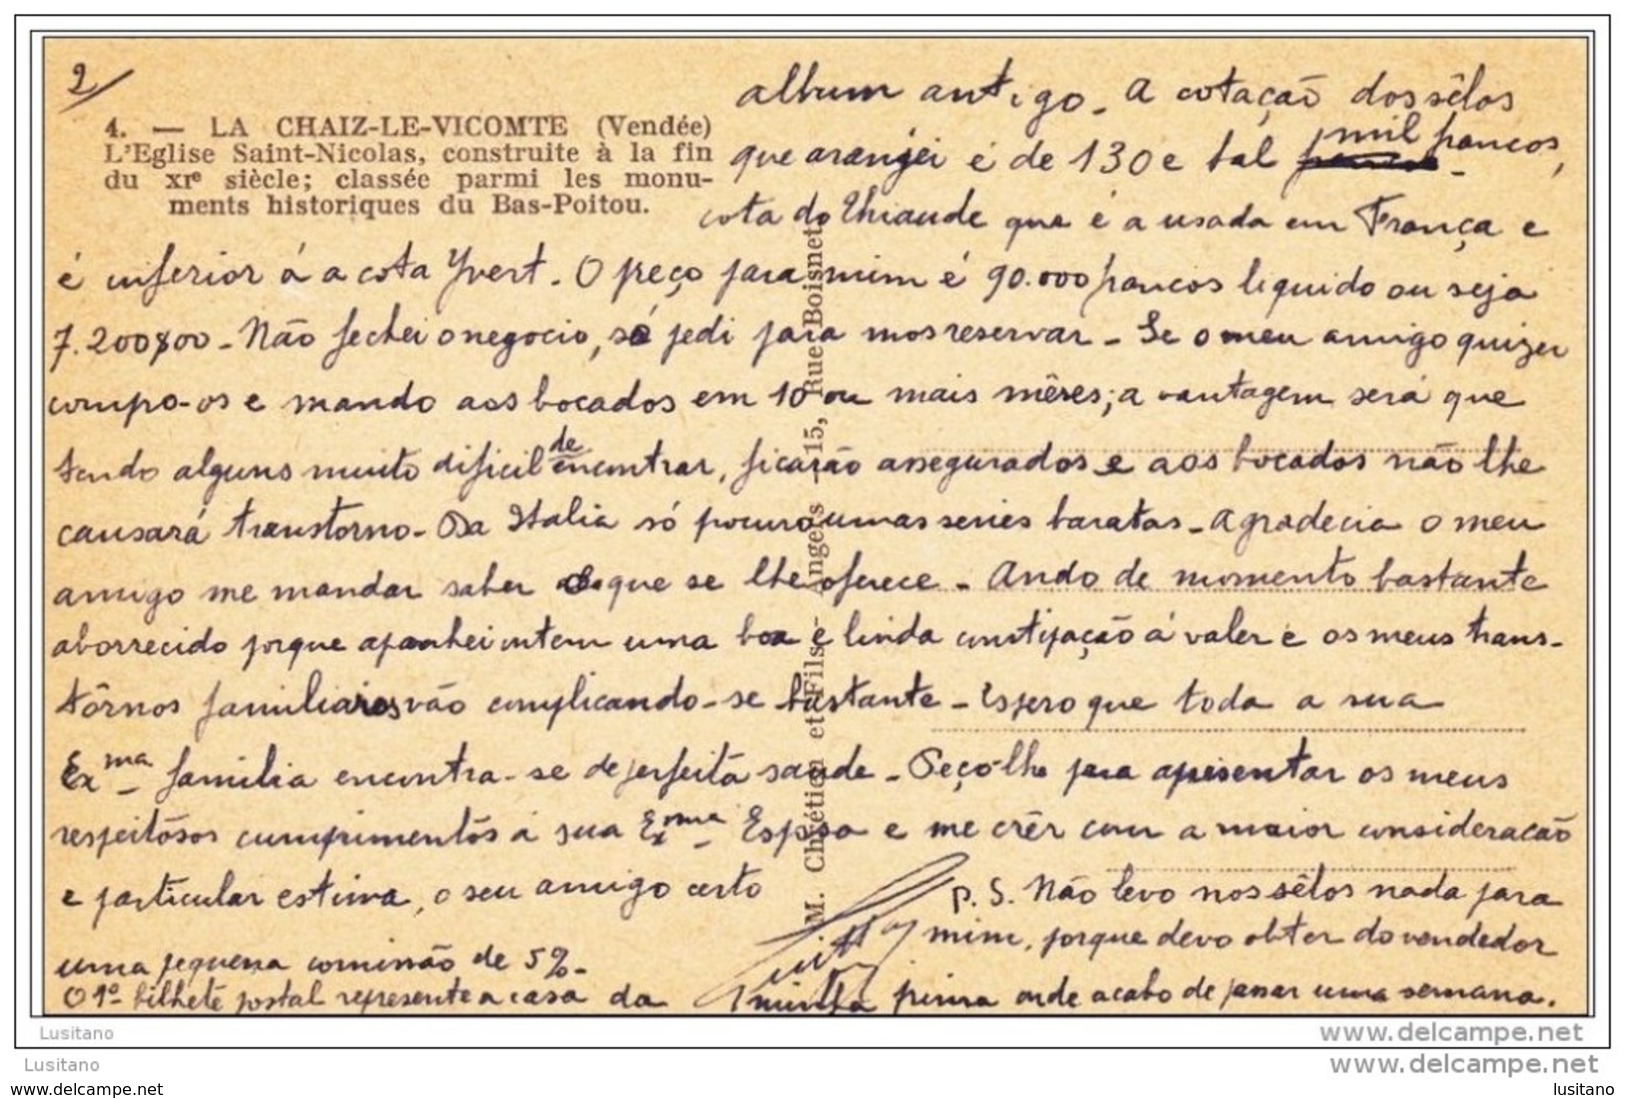 2/
4. — LA CHAIZ-LE-VICOMTE (Vendée)
L'Eglise Saint-Nicolas, construite à la fin
du XIe siècle; classée parmi les monu-
ments historiques du Bas-Poitou.
album antigo. A cotação dos sêlos
que aranjei é de 130 e tal mil francos,
cota do Thiaude que é a usada em França e
é inferior á a cota Yvert. O preço para mim é 90.000 francos liquido ou seja
7.200$00 - Não fechei o negocio, só pedi para mos reservar - Se o meu amigo quizer
compo-os e mando aos bocados em 10 ou mais mêses; a vantagem será que
sendo alguns muito dificil de encontrar, ficarão assegurados e aos bocados não lhe
causará transtorno - Da Italia só procuro umas series baratas - Agradecia o meu
amigo me mandar saber o que se lhe oferece - Ando de momento bastante
aborrecido porque apanhei ontem uma boa e linda constipação á valer e os meus trans-
tôrnos familiares vão complicando-se bastante - Espero que toda a sua
Exma familia encontra-se de perfeita saude - Peço-lhe para apresentar os meus
respeitósos cumprimentós á sua Exma Espôsa e me crêr com a maior consideracão
e particular estima, o seu amigo certo
P. S. Não levo nos sêlos nada para
mim, porque devo obter do vendedor
uma pequena comissão de 5%-
O 1º bilhete postal represente a casa da minha prima onde acabo de passar uma semana.
M. Chrétien et Fils - Angers - 15, Rue Boisnet
Lusitano
www.delcampe.net
Lusitano
www.delcampe.net
www.delcampe.net
lusitano